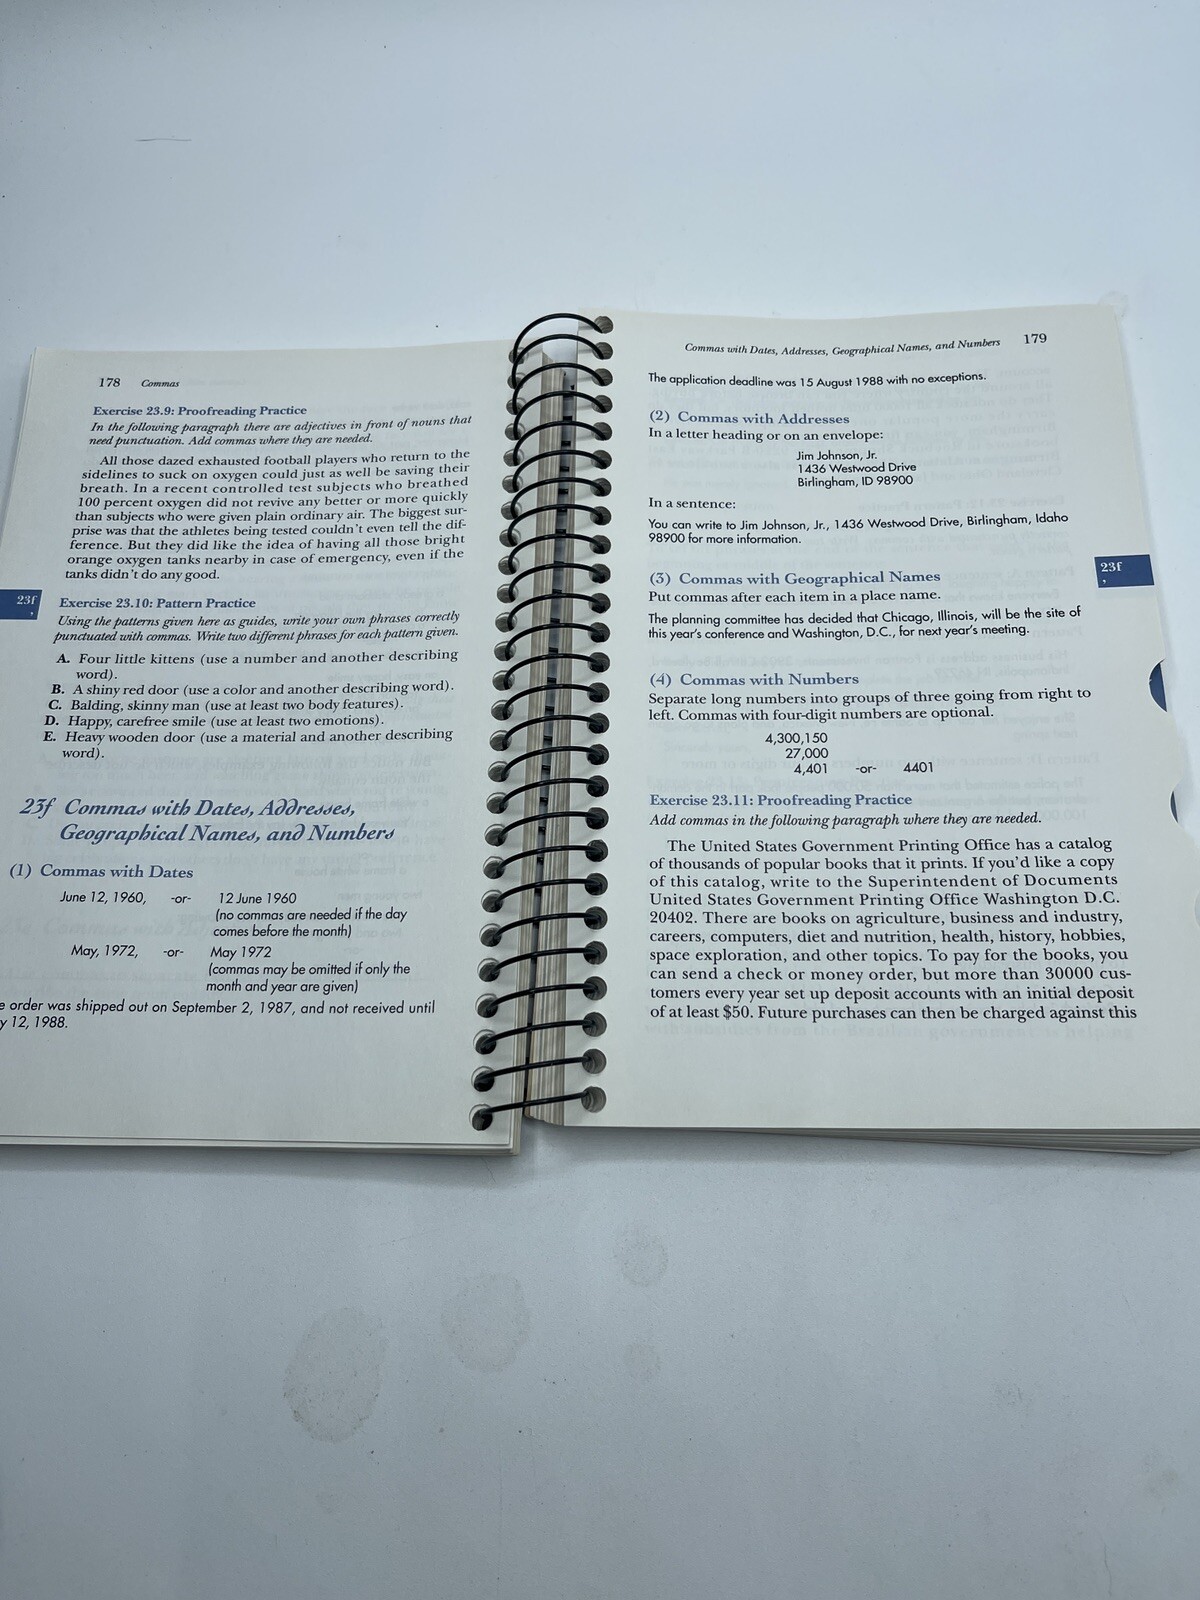 178 Commas
Exercise 23.9: Proofreading Practice
In the following paragraph there are adjectives in front of nouns that
need punctuation. Add commas where they are needed.
All those dazed exhausted football players who return to the
sidelines to suck on oxygen could just as well be saving their
breath. In a recent controlled test subjects who breathed
100 percent oxygen did not revive any better or more quickly
than subjects who were given plain ordinary air. The biggest sur-
prise was that the athletes being tested couldn't even tell the dif-
ference. But they did like the idea of having all those bright
orange oxygen tanks nearby in case of emergency, even if the
tanks didn't do any good.
23f
,
Exercise 23.10: Pattern Practice
Using the patterns given here as guides, write your own phrases correctly
punctuated with commas. Write two different phrases for each pattern given.
A. Four little kittens (use a number and another describing
word).
B. A shiny red door (use a color and another describing word).
C. Balding, skinny man (use at least two body features).
D. Happy, carefree smile (use at least two emotions).
E. Heavy wooden door (use a material and another describing
word).
23f Commas with Dates, Addresses,
Geographical Names, and Numbers
(1) Commas with Dates
June 12, 1960, -or- 12 June 1960
(no commas are needed if the day
comes before the month)
May, 1972, -or- May 1972
(commas may be omitted if only the
month and year are given)
order was shipped out on September 2, 1987, and not received until
12, 1988.
Commas with Dates, Addresses, Geographical Names, and Numbers 179
The application deadline was 15 August 1988 with no exceptions.
(2) Commas with Addresses
In a letter heading or on an envelope:
Jim Johnson, Jr.
1436 Westwood Drive
Birlingham, ID 98900
In a sentence:
You can write to Jim Johnson, Jr., 1436 Westwood Drive, Birlingham, Idaho
98900 for more information.
23f
,
(3) Commas with Geographical Names
Put commas after each item in a place name.
The planning committee has decided that Chicago, Illinois, will be the site of
this year's conference and Washington, D.C., for next year's meeting.
(4) Commas with Numbers
Separate long numbers into groups of three going from right to
left. Commas with four-digit numbers are optional.
4,300,150
27,000
4,401 -or- 4401
Exercise 23.11: Proofreading Practice
Add commas in the following paragraph where they are needed.
The United States Government Printing Office has a catalog
of thousands of popular books that it prints. If you'd like a copy
of this catalog, write to the Superintendent of Documents
United States Government Printing Office Washington D.C.
20402. There are books on agriculture, business and industry,
careers, computers, diet and nutrition, health, history, hobbies,
space exploration, and other topics. To pay for the books, you
can send a check or money order, but more than 30000 cus-
tomers every year set up deposit accounts with an initial deposit
of at least $50. Future purchases can then be charged against this